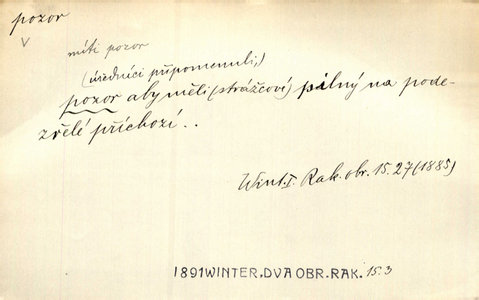 pozor
míti pozor
(úředníci připomenuli,)
pozor aby měli (strážcové) pilný na pode-
zřelé příchozí..
Wint. I. Rak. obr. 15. 27 (1885)
1891 WINTER. DVA OBR. RAK. 15.3